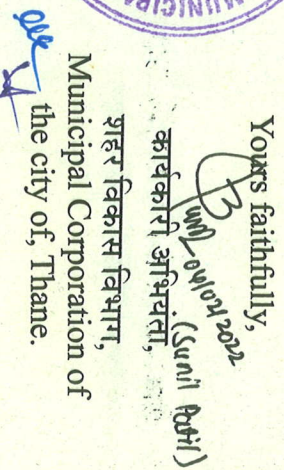 MUNICIPA
Yours faithfully,
04/02/2022
(Sunil Patil)
कार्यकारी अभियंता,
शहर विकास विभाग,
Municipal Corporation of
the city of, Thane.